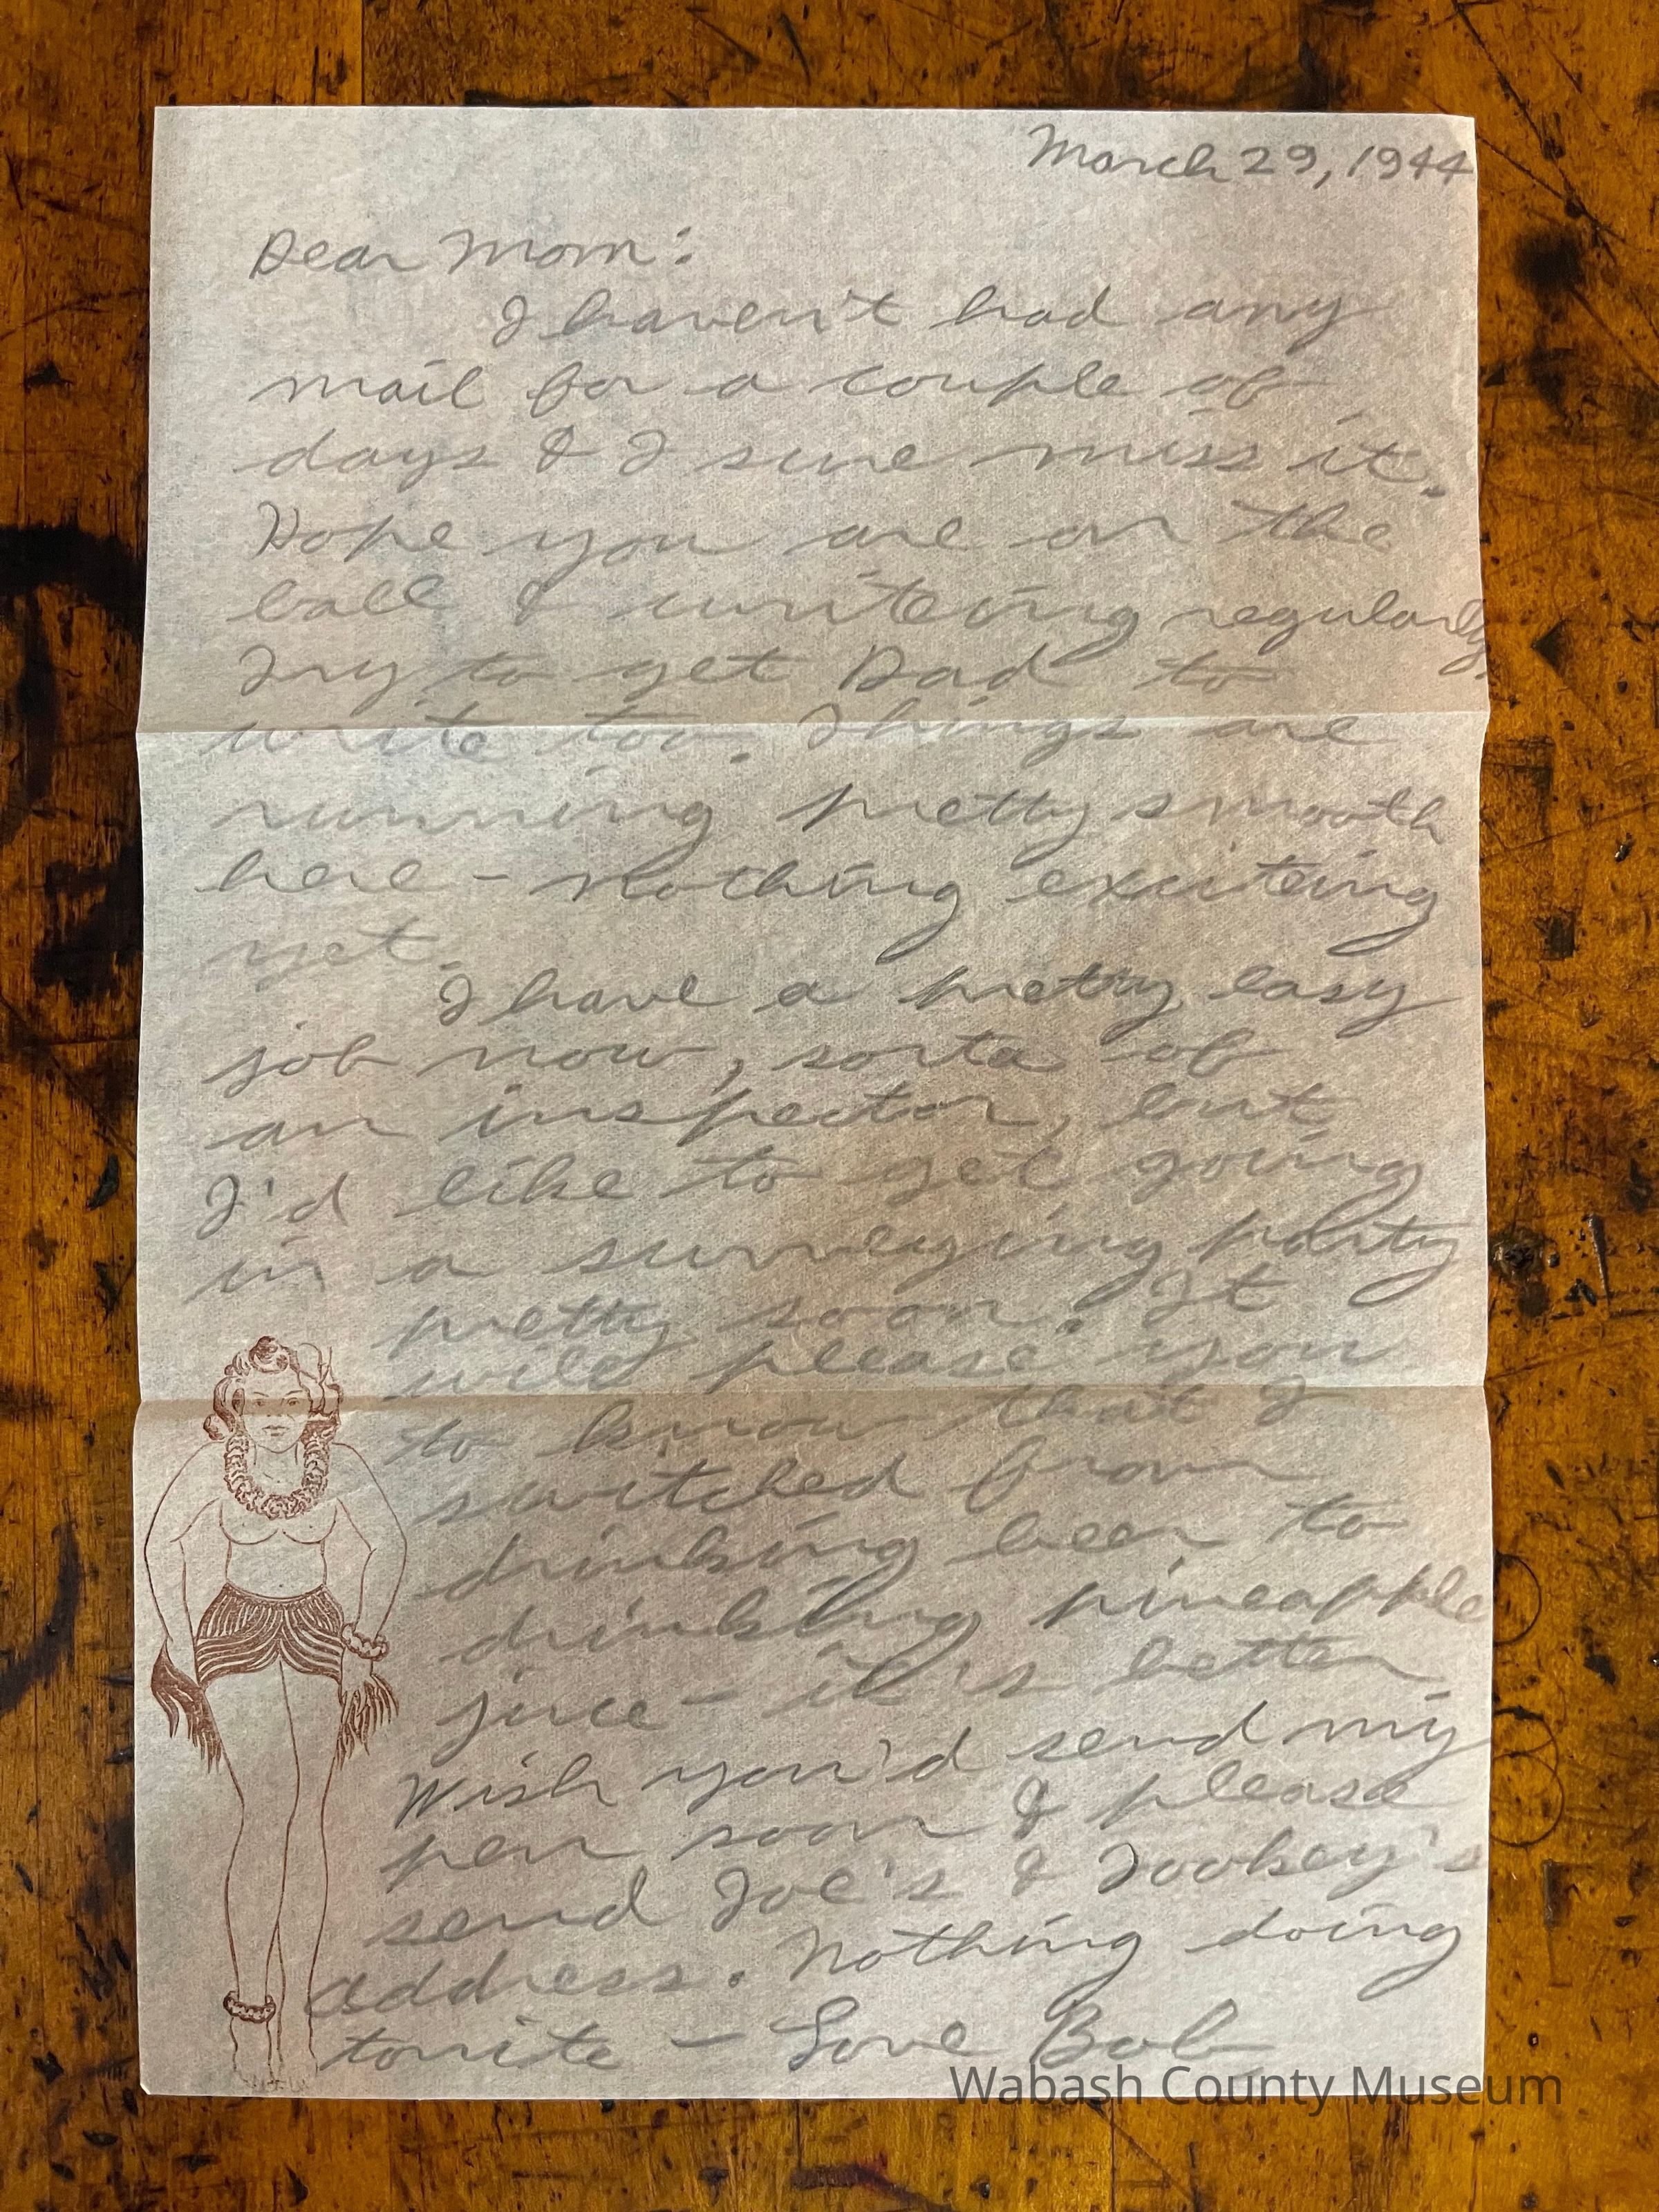 March 29, 1944
Dear Mom:
I haven't had any
mail for a couple of
days & I sure miss it.
Hope you are on the
ball & writeing regularly.
Try to get Dad to
write too. Things are
running pretty smooth
here - nothing exciteing
yet.
I have a pretty easy
job now, sorta of
an inspector, but
I'd like to get going
in a surveying party
pretty soon. It
will please you
to know that I
switched from
drinking beer to
drinking pineapple
juice - it's better.
Wish you'd send my
pen soon & please
send Joe's & Tookey's
address. Nothing doing
tonite - Love Bob
Wabash County Museum